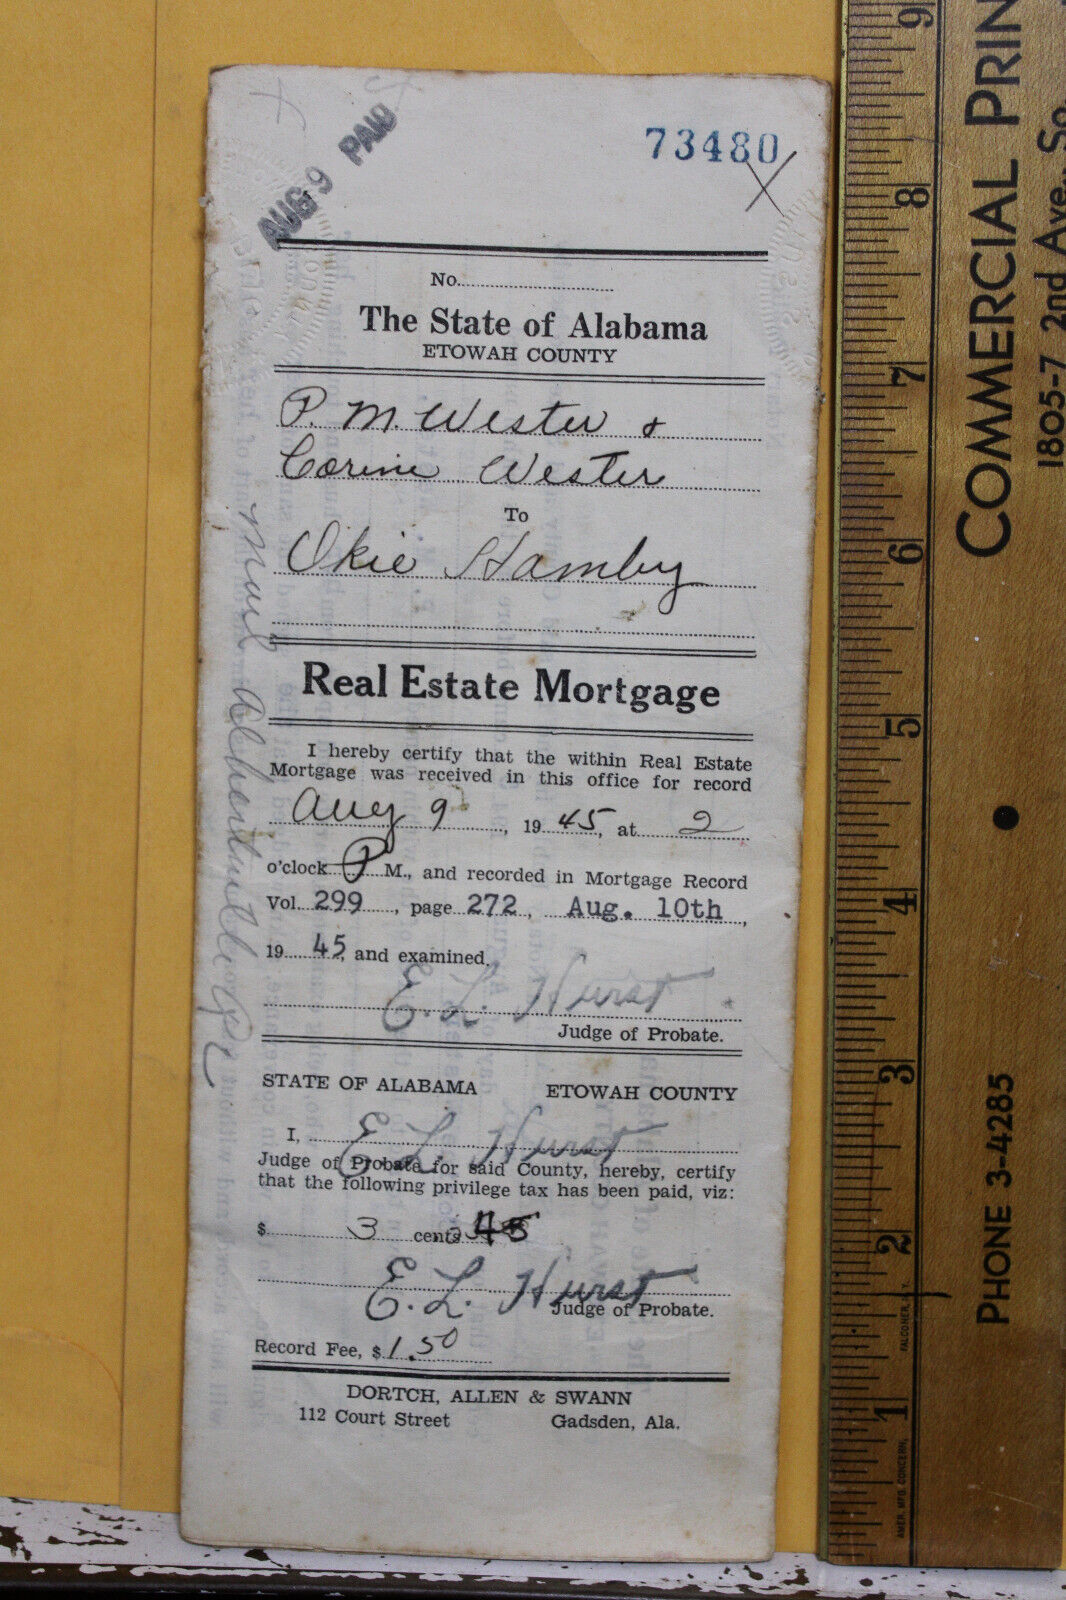 AUG 9 PAID
73480
No.
The State of Alabama
ETOWAH COUNTY
P. M. Wester &
Corine Wester
To
Okie Hamby
Real Estate Mortgage
I hereby certify that the within Real Estate
Mortgage was received in this office for record
Aug 9, 1945, at 2
o'clock P M., and recorded in Mortgage Record
Vol. 299, page 272, Aug. 10th,
1945, and examined.
E. L. Hurst
Judge of Probate.
STATE OF ALABAMA ETOWAH COUNTY
I, E L. Hurst
Judge of Probate for said County, hereby, certify
that the following privilege tax has been paid, viz:
$ 3 cents 45
E. L. Hurst
Judge of Probate.
Record Fee, $1.50
DORTCH, ALLEN & SWANN
112 Court Street Gadsden, Ala.
Mail
COMMERCIAL PRIN
1805-7 2nd Ave., So.
PHONE 3-4285
9
8
7
6
5
4
3
2
1
AMER. MFG. CONCERN, FALCONER, N.Y.